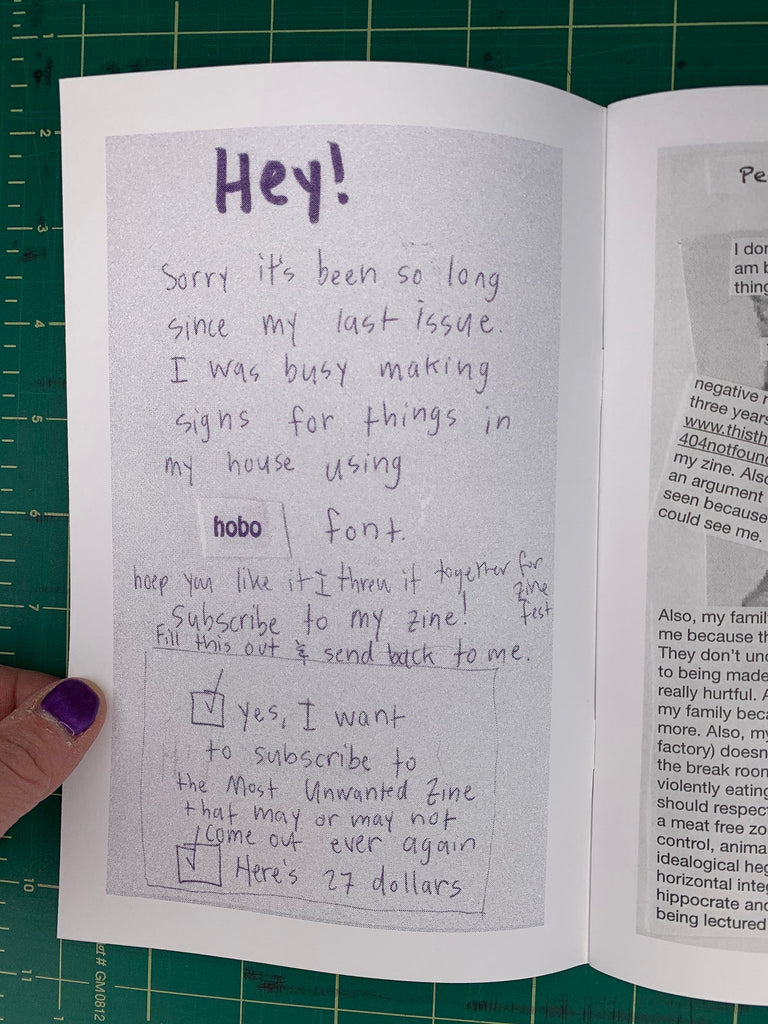 Hey!
Sorry it's been so long
since my last issue.
I was busy making
signs for things in
my house using
hobo font.
hoep you like it I threw it together for
zine
fest
Subscribe to my zine!
Fill this out & send back to me.
Yes, I want
to subscribe to
the Most Unwanted Zine
that may or may not
come out ever again
Here's 27 dollars
Pe
I don
am b
thing
negative r
three years
www.thisth
404notfound
my zine. Also
an argument
seen because
could see me.
Also, my family
me because th
They don't und
to being made
really hurtful. A
my family beca
more. Also, my
factory) doesn'
the break room
violently eating
should respect
a meat free zo
control, anima
idealogical heg
horizontal integ
hippocrate and
being lectured
1
2
3
4
5
6
7
10
11
at # GM0812